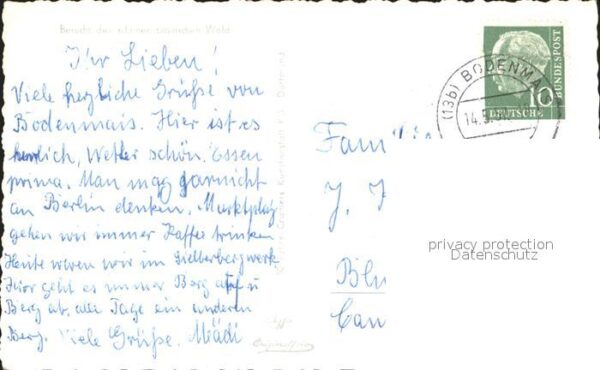 Besucht den schönen bayrischen Wald
Ihr Lieben!
Viele herzliche Grüße von
Bodenmais. Hier ist es
herrlich, Wetter schön. Essen
prima. Man mag garnicht
an Berlin denken. Marktplatz
gehen wir immer Kaffee trinken
Heute waren wir im Silberbergwerk
Hier geht es immer Berg auf u
Berg ab, alle Tage ein anderen
Berg. Viele Grüße. Mädi
(13b) BODENMA
14.5.
10
DEUTSCHE
BUNDESPOST
Fam
J. J
Bln
privacy protection
Datenschutz